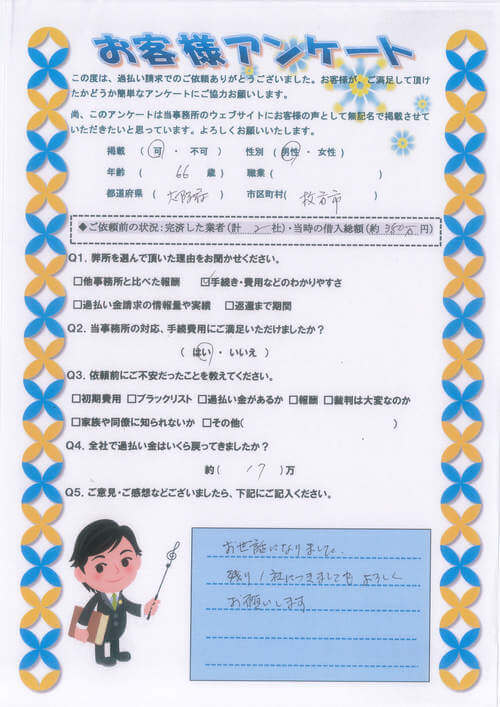 お客様アンケート
この度は、過払い請求でのご依頼ありがとうございました。お客様が、ご満足して頂け
たかどうか簡単なアンケートにご協力お願いします。
尚、このアンケートは当事務所のウェブサイトにお客様の声として無記名で掲載させて
いただきたいと思っています。よろしくお願いいたします。
掲載 ( 可 ・ 不可 ) 性別 ( 男性 ・ 女性 )
年齢 ( 66 歳 ) 職業 ( )
都道府県 ( 大阪府 ) 市区町村( 枚方市 )
◆ご依頼前の状況:完済した業者(計 2 社)・当時の借入総額(約 380万 円)
Q1. 弊所を選んで頂いた理由をお聞かせください。
□他事務所と比べた報酬 ☑手続き・費用などのわかりやすさ
□過払い金請求の情報量や実績 □返還まで期間
Q2. 当事務所の対応、手続費用にご満足いただけましたか?
( はい ・ いいえ )
Q3. 依頼前にご不安だったことを教えてください。
□初期費用 □ブラックリスト □過払い金があるか □報酬 □裁判は大変なのか
□家族や同僚に知られないか □その他( )
Q4. 全社で過払い金はいくら戻ってきましたか?
約( 17 )万
Q5. ご意見・ご感想などございましたら、下記にご記入ください。
お世話になりました、
残り1社につきましてもよろしく
お願いします